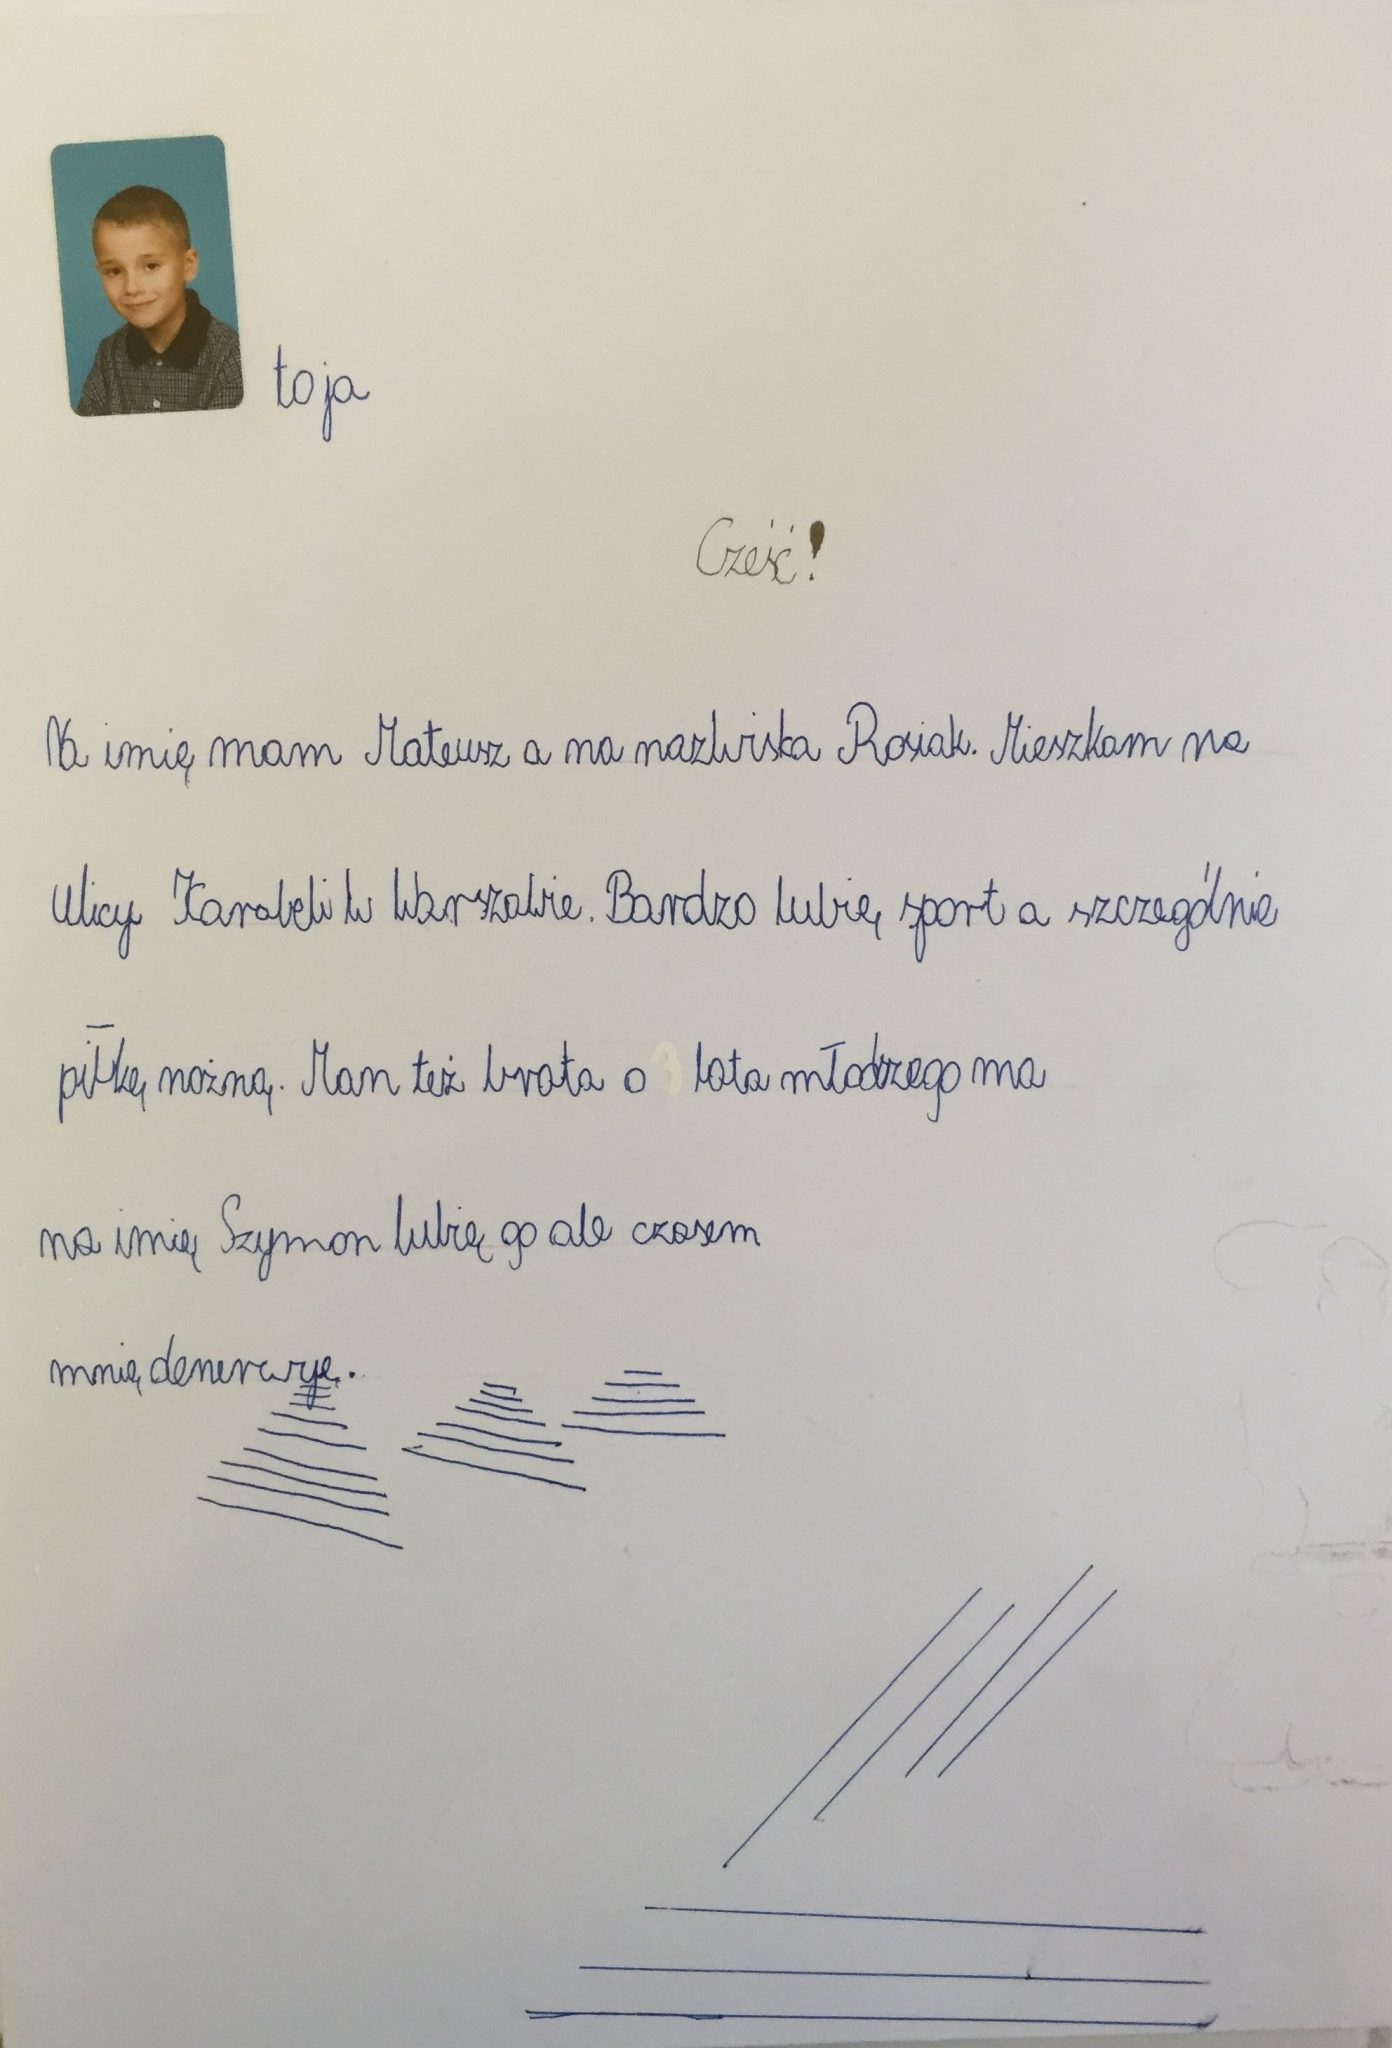 to ja
Cześć!
Na imię mam Mateusz a na nazwiska Rosiak. Mieszkam na
ulicy Karabeli w Warszawie. Bardzo lubię sport a szczególnie
piłkę nożną. Man też brata o 3 lata młodzego ma
na imię Szymon lubię go ale czasem
mnię denerwuję.